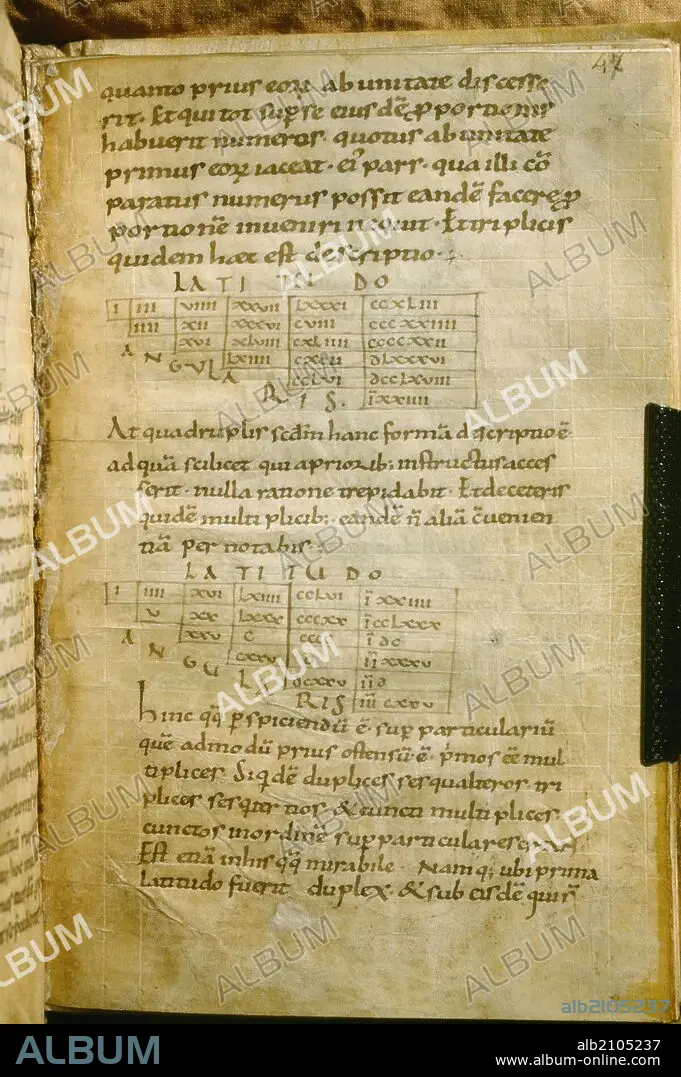 47
quanto prius eorꝝ ab unitate discesse
rit· Et qui tot sup se eiusdē ꝓportionis
habuerit numeros· quotus ab unitate
primus eorꝝ iaceat· ei pars· qua illi cō
paratus numerus possit eandē facere ꝓ
portionē inveniri nequit· Et triplicis
quidem haec est descriptio·
LATITUDO
i iii viiii xxvii lxxxi ccxliii
iiii xii xxxvi cviii cccxxiiii
xvi xlviii cxliiii ccccxxii
lxiiii cxcii dlxxvi
cclvi dcclxviii
īxxiiii
ANGULARIS.
At quadruplis scdm hanc formā descriptio ē·
ad quā scilicet qui a priorib; instructus acces
serit· nulla ratione trepidabit· Et de ceteris
quidē multiplicib; · eandē n̄ aliā c̄uenien
tiā per notabis
LATITUDO
i iiii xvi lxiiii cclvi īxxiiii
v xx lxxx cccxx īcclxxx
xxv c cccc īdc
cxxv īī
dcxxv
īīīcxxv
ANGULARIS
hinc q̄q̄ pspiciendū ē· sup particulariū
quē admodū prius ostensū ē· p̄mos eē mul
tiplices· Siq̄dē duplices sesqualteros· tri
plices sesqter tios· & cuncti multiplices·
cunctos in ordinē sup particulares
Est etiā in his q̄q̄ mirabile· Namq; ubi prima
latitudo fuerit duplex· & sub eisdē qui
ALBUM
alb2105237
ALBUM
alb2105237
www.album-online.com